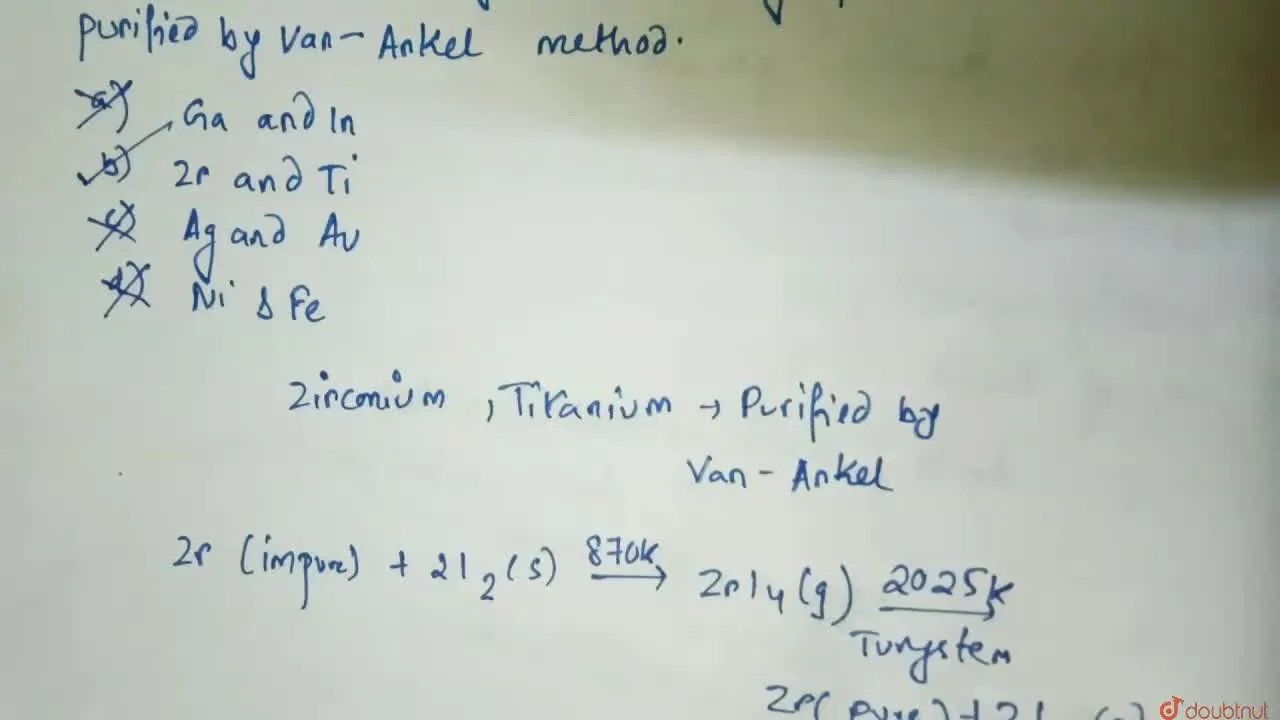 purified by Van-Ankel method.
a) Ga and In
b) Zr and Ti
c) Ag and Au
d) Ni & Fe
Zirconium, Titanium → Purified by
Van-Ankel
Zr (impure) + 2I2(s) 870K → ZrI4(g) 2025K →
Tungsten
Zr(pure) + 2I
doubtnut